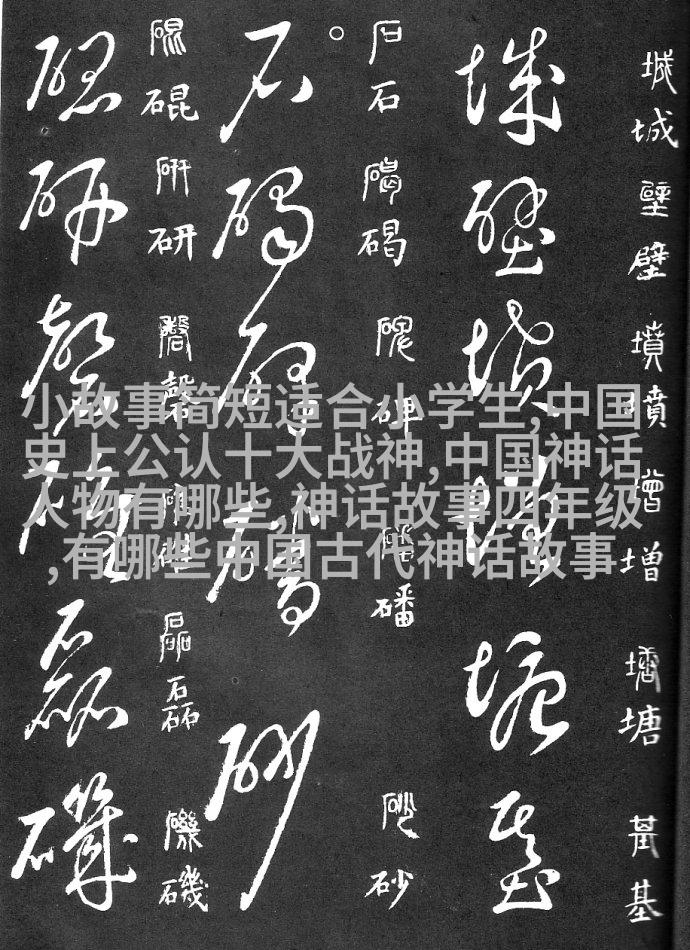 小故事简短适合小学生,中国
史上公认十大战神,中国神话
人物有哪些,神话故事四年级
,有哪些中国古代神话故事
城城壁壁墳墳增增塘塘基基
城壁墳增塘基
石石碣碣碑碑磻磻砂砂
石碣碑磻砂
研研磬磬磊磊磯磯
研磬磊磯